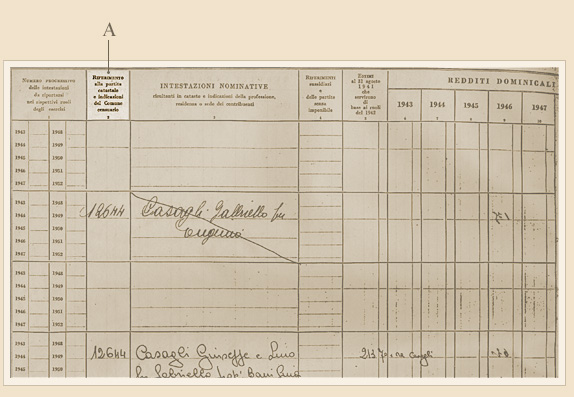 A
NUMERO PROGRESSIVO
delle intestazioni
da riportarsi
nei rispettivi ruoli
degli esercizi
RIFERIMENTO
alla partita
catastale
e indicazioni
del Comune
censuario
2
INTESTAZIONI NOMINATIVE
risultanti in catasto e indicazioni della professione,
residenza o sede dei contribuenti
3
RIFERIMENTI
e
delle partite
senza
imponibile
ESTIMI
al 31 agosto
1941
che
servirono
di
base ai ruoli
del 1942
REDDITI DOMINICALI
1943
1944
1945
1946
1947
1943 1948
1944 1949
1945 1950
1946 1951
1947 1952
1943 1948
1944 1949
1945 1950
1946 1951
1947 1952
12644
Casagli Gabriello fu
Eugenio
1943 1948
1944 1949
1945 1950
1946 1951
1947 1952
1943 1948
1944 1949
1945 1950
12644
Casagli Giuseppe e Lina
fu Gabriello
213